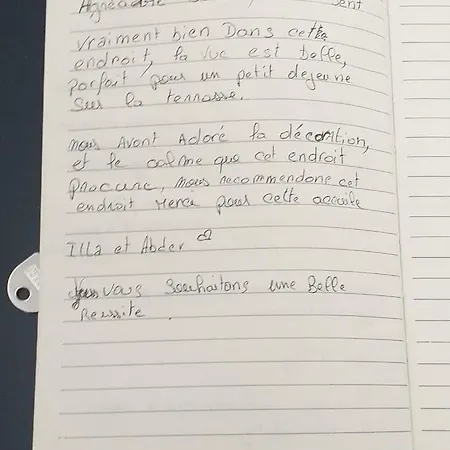 Agréable sent
vraiment bien Dans cette
endroit, la vue est belle,
parfait pour un petit dejeune
sur la terrasse.
nous Avont Adoré la décoration,
et le calme que cet endroit
procure, nous recommendons cet
endroit Merci pour cette accuile
Illa et Abder
vous souhaitons une Belle
Reussite.